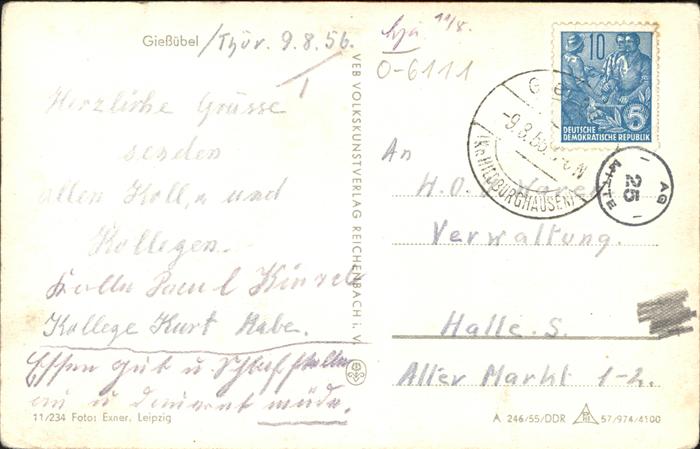 Gießübel /Thür. 9.8.56.
Herzliche Grüsse
senden
allen Koll,n und
Kollegen.
Kolln Paul
Kollege Kurt Rabe.
Essen gut u Schlafstellen
u müde.
11/234 Foto: Exner, Leipzig
VEB VOLKSKUNSTVERLAG REICHENBACH i. V.
11/8.
0-6111
10
DEUTSCHE
DEMOKRATISCHE REPUBLIK
5
-9.8.56
(Kr. HILDBURGHAUSEN)
AG
25
MITTE
An
H.O.
Verwaltung.
Halle. S.
Alter Markt 1-2.
A 246/55/DDR 57/974/4100